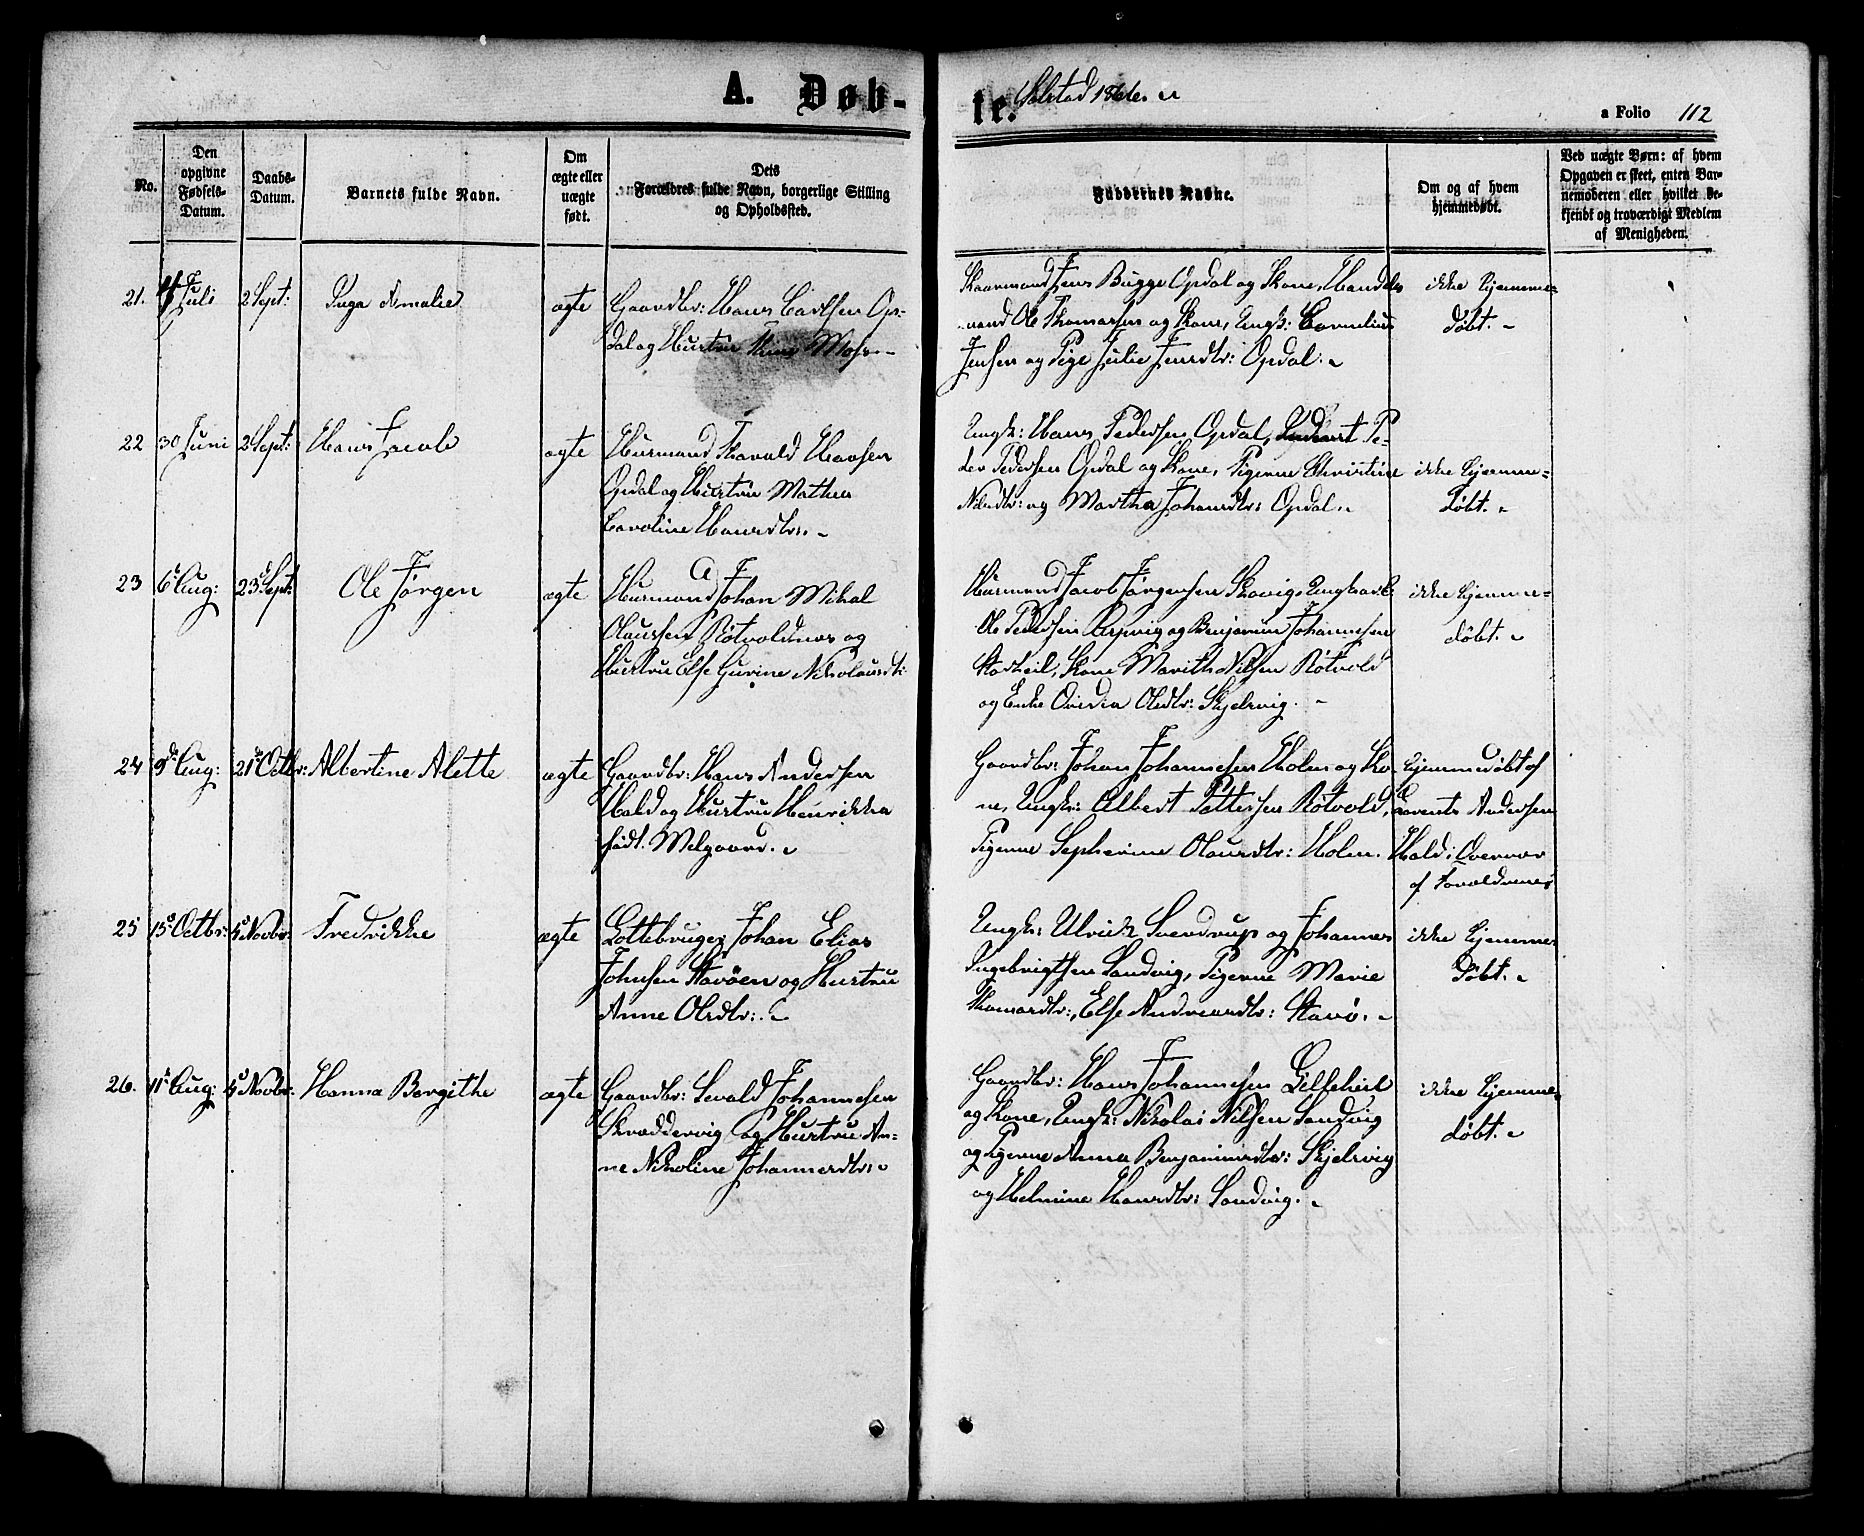 A. Døb-
te.
Solstad 1866.
a Folio 112
No.
Den opgivne Fødsels-Datum.
Daabs-Datum.
Barnets fulde Navn.
Om ægte eller uægte født.
Dets
Forældres fulde Navn, borgerlige Stilling
og Opholdssted.
Faddernes Navne.
Om og af hvem
hjemmedøbt.
Ved uægte Børn: af hvem
Opgaven er skeet, enten Bar-
nemoderen eller hvilket be-
kjendt og troværdigt Medlem
af Menigheden.
21. Juli 2 Sept: Inga Amalie ægte
Gaardbr: Hans Carlsen Op-
dal og Hustru Mose
Kaarmand Jens Bugge Opdal og Kone, Handels
mand Ole Thomassen og Kone, Ungk: Cornelius
Jensen og Pige Julie Jensdtr: Opdal.
ikke hjemme-
døbt.
22 30 Juni 2 Sept: Hans Jacob ægte
Husmand Harald Hansen
Opdal og Hustru Mathea
Caroline Hansdtr:
Ungk: Hans Pedersen Opdal, Pe-
der Pedersen Opdal og Kone, Pigerne Christine
Nilsdtr: og Martha Johansdtr: Opdal.
ikke hjemme-
døbt.
23 6 Aug: 23 Sept: Ole Jørgen ægte
Husmand Johan Mikal
Olaussen Røtvoldnes og
Hustru Else Gurine Nikolausdt:
Husmand Jacob Jørgensen Skavig, Ungkarle
Ole Pedersen og Benjamin Johannesen
Kone Marith Nilsen Røtvold
og Enke Ovidia Olsdtr: Skjelvig.
ikke hjemme-
døbt.
24 9 Aug: 21 Octbr: Albertine Alette ægte
Gaardbr: Hans Andersen
Hald og Hustru Henrikka
født Melgaard.
Gaardbr: Johan Johannesen Holm og Ko-
ne, Ungk: Albert Pettersen Røtvold,
Pigerne Sepherine Olausdtr: Holm.
hjemmedøbt af
Andersen
Hald i Overvær
af Forældrenes
25 15 Octbr: 4 Novbr: Fredrikke ægte
Lottebruger Johan Elias
Johnsen Stavøen og Hustru
Anne Olsdtr:
Ungk: Ulrick Svendrup og Johannes
Ingebrigtsen Sandvig, Pigerne Marie
Thomasdtr:, Else Andreasdtr: Stavø.
ikke hjemme
døbt.
26. 11 Aug: 4 Novbr: Hanna Bergithe ægte
Gaardbr: Sevald Johannesen
Skræddervig og Hustru An-
ne Nikoline Johannesdtr:
Gaardbr: Hans Johannesen
og Kone, Ungk: Nikolai Nilsen Sandvig
og Pigerne Anna Benjaminsdtr: Skjelvig
og Helmine Hansdtr: Sandvig.
ikke hjemme
døbt.